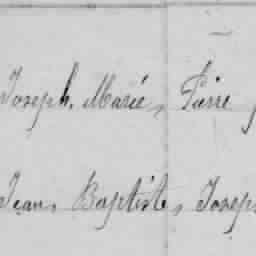 Joseph, Marie, Pierre
Jean, Baptiste, Joseph